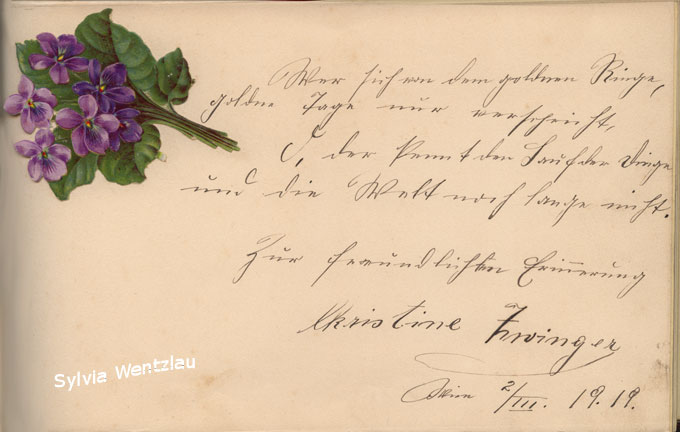 Wer sich von dem goldnen Ringe,
goldne Tage nur verspricht,
O, der kennt den Lauf der Dinge
und die Welt noch lange nicht.
Zur freundlichen Erinnerung
Christine Zwinger
Wien 2/III. 1919.
Sylvia Wentzlau